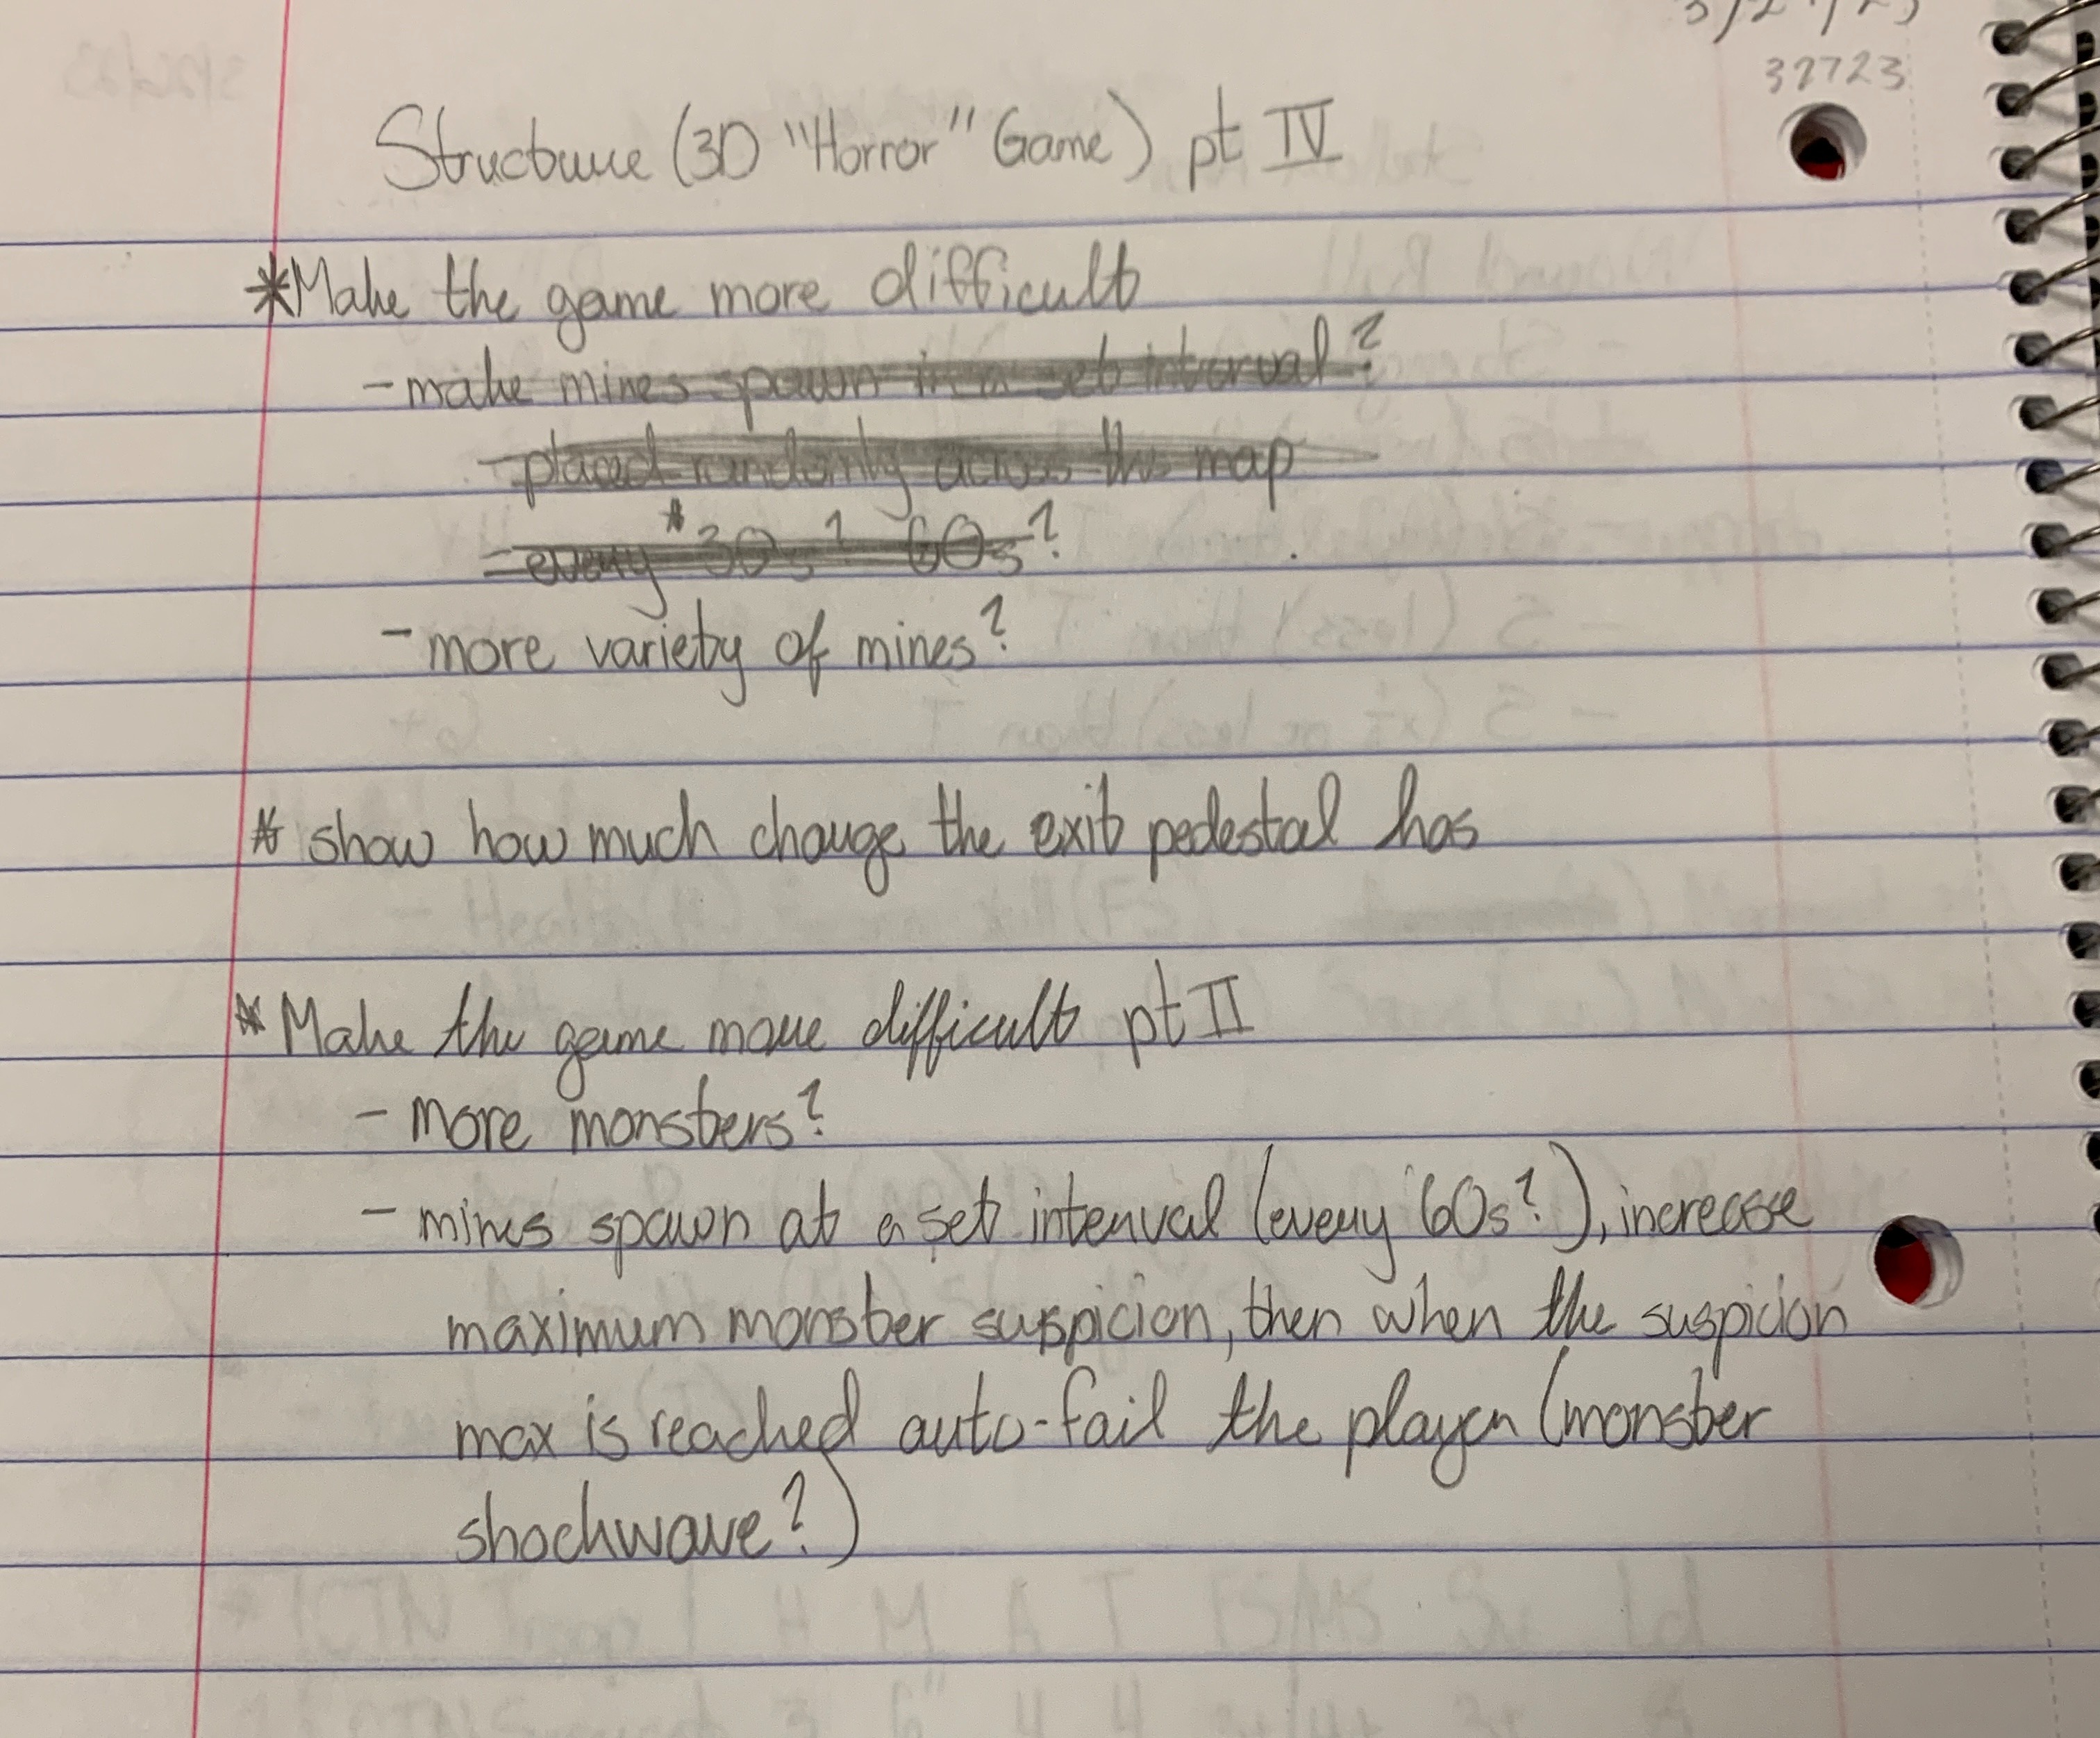 3/27/23
32723
Structure (3D "Horror" Game) pt IV
*Make the game more difficult
- make mines spawn in a set interval?
- placed randomly across the map
- every *30s? 60s?
- more variety of mines?
* show how much change the exit pedestal has
*Make the game more difficult pt II
- more monsters?
- mines spawn at a set interval (every 60s?), increase
maximum monster suspicion, then when the suspicion
max is reached auto-fail the player (monster
shockwave?)